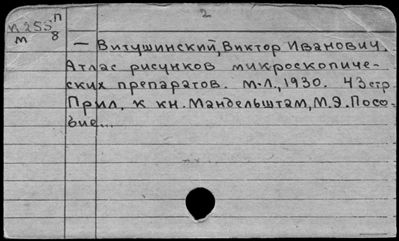 2
И 255 п
м 8
— Витушинский, Виктор Иванович.
Атлас рисунков микроскопиче-
ских препаратов. М.-Л., 1930. 43 стр
Прил. к кн. Мандельштам, М.Э. Посо-
бие...